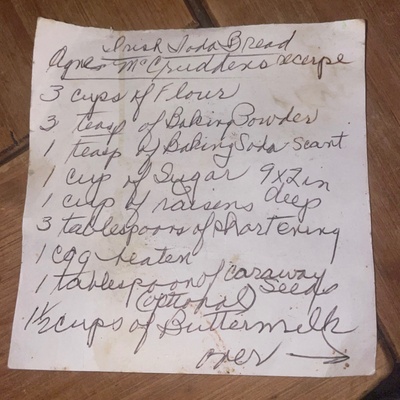 Irish Soda Bread
Agnes McCruddens recipe
3 cups of Flour
3 teasp of Baking Powder
1 teasp of Baking Soda scant
1 cup of Sugar 9x2in
1 cup of raisens deep
3 tablespoons of shortening
1 egg beaten
1 tablespoon of caraway Seeds
(optional)
1½ cups of Buttermilk
over →